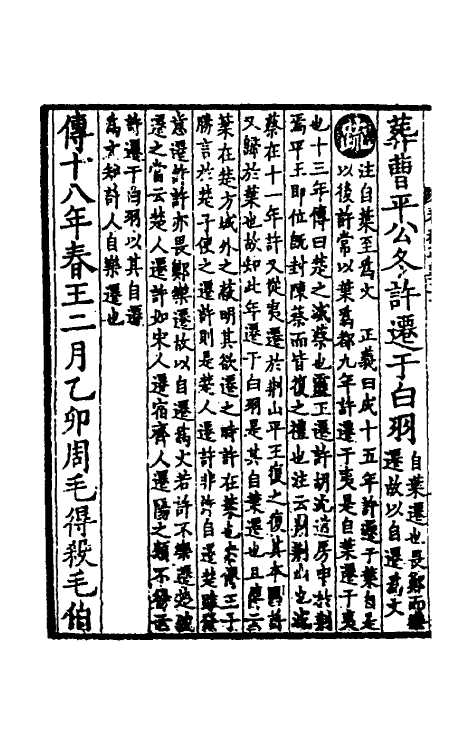 葬曹平公冬許遷于白羽自葉遷也畏鄭而樂
遷故以自遷爲文
疏注自葉至爲文　正義曰成十五年許遷于葉自是
以後許常以葉爲都九年許遷于夷是自葉遷于夷
也十三年傳曰楚之滅蔡也靈王遷許胡沈道房申於荆
焉平王即位既封陳蔡而皆復之禮也注云荆荆山也滅
蔡在十一年許又從夷遷於荆山平王復之復其本國許
又歸於葉也故知此年遷于白羽是其自葉遷也且傳云
葉在楚方城外之蔽明其欲遷之時許在葉也宋傳王子
勝言於楚子使之遷許則是楚人遷許非許自遷楚雖發
意遷許許亦畏鄭樂遷故以自遷爲文若許不樂遷楚彊
遷之當云楚人遷許如宋人遷宿齊人遷陽之類不發云
許遷于白羽以其自遷
爲文知許人自樂遷也
傳十八年春王二月乙卯周毛得殺毛伯